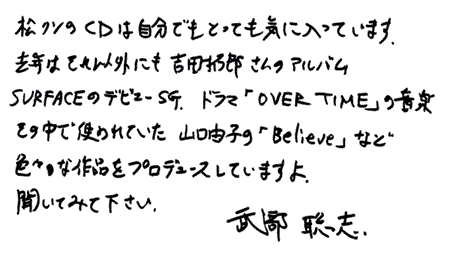 松クンのCDは自分でもとっても気に入っています.
去年はそれ以外にも 吉田拓郎さんのアルバム
SURFACEのデビューSG. ドラマ「OVER TIME」の音楽
その中で使われていた 山口由子の「Believe」など
色々な作品をプロデュースしていますよ.
聞いてみて下さい.
武部 聡志.